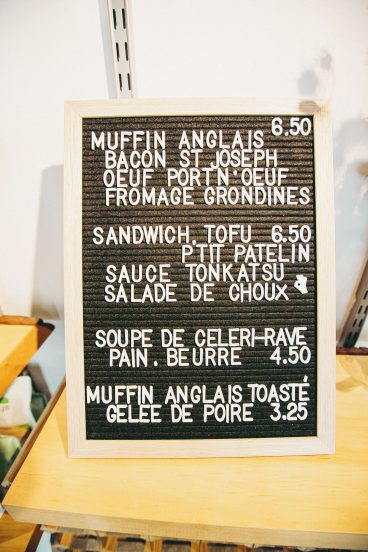 MUFFIN ANGLAIS 6.50
BACON ST JOSEPH
OEUF PORT N' OEUF
FROMAGE GRONDINES
SANDWICH. TOFU 6.50
P'TIT PATELIN
SAUCE TONKATSU
SALADE DE CHOUX
SOUPE DE CELERI-RAVE
PAIN. BEURRE 4.50
MUFFIN ANGLAIS TOASTÉ
GELEE DE POIRE 3.25